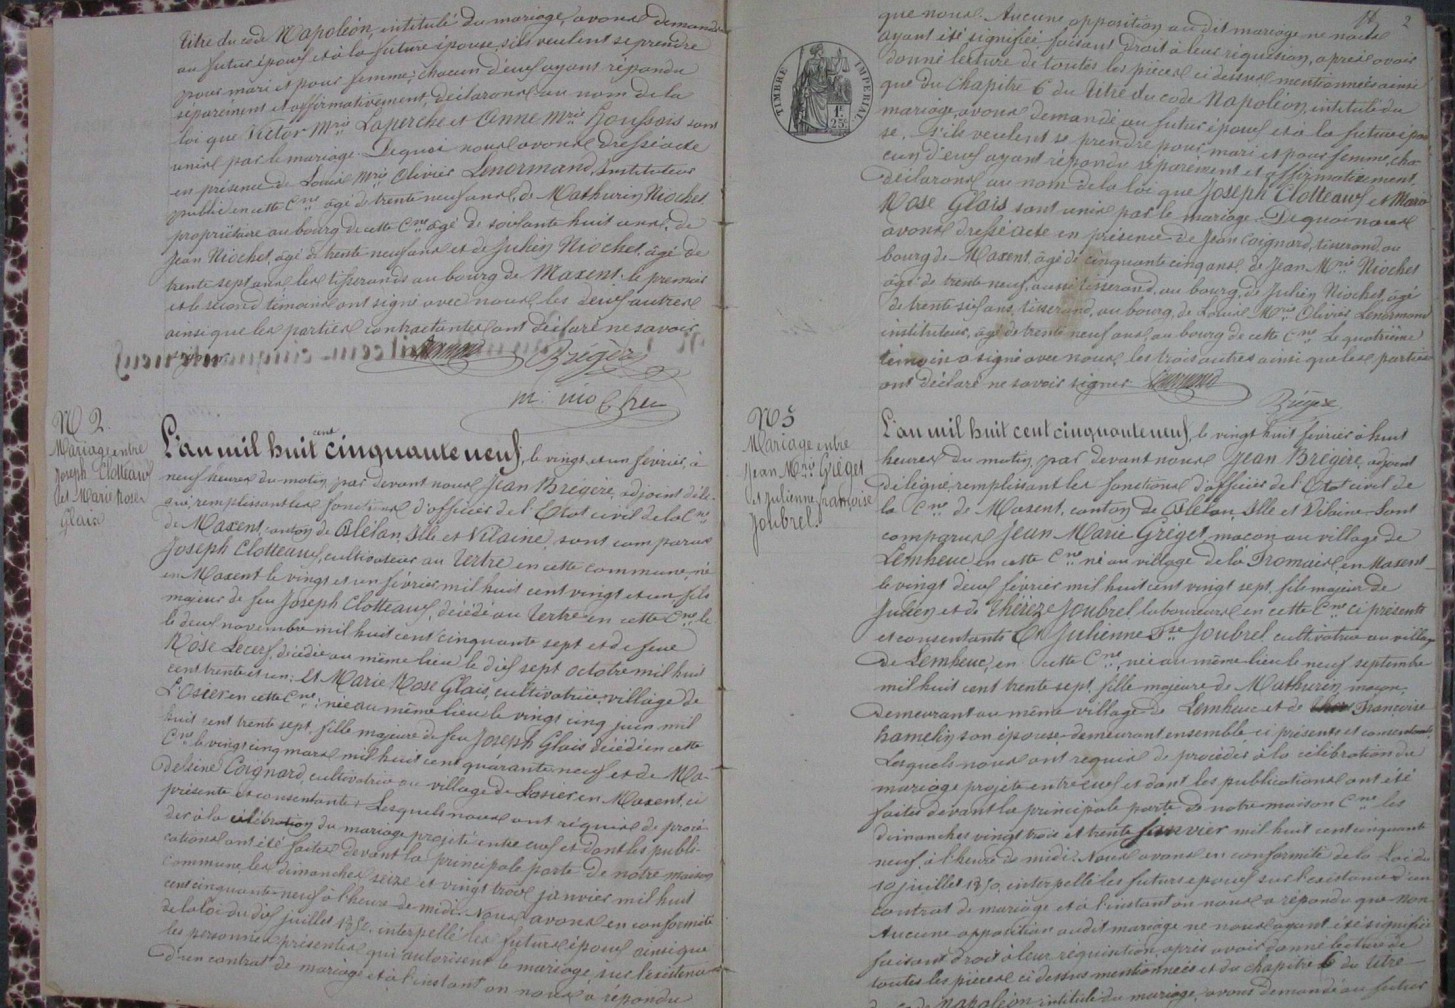 titre du code Napoléon, intitulé du mariage, avons demandé
au futur époux et à la future épouse, s'ils veulent se prendre
pour mari et pour femme; chacun d'eux ayant répondu
séparément et affirmativement, déclarons au nom de la
loi que Victor Mrie Laperche et Anne Mrie Houssais sont
unis par le mariage. De quoi nous avons dressé acte
en présence de Louis Mrie Olivier Lenormand, instituteur
public en cette Cne âgé de trente neuf ans, de Mathurin Niochet
propriétaire au bourg de cette Cne âgé de soixante huit ans, de
Jean Niochet, âgé de trente neuf ans et de Julien Niochet, âgé de
trente sept ans les tisserands au bourg de Maxent. le premier
et le second témoins ont signé avec nous, les deux autres
ainsi que les parties contractantes ont déclaré ne savoir
signer.
Brégère
N 2
Mariage entre
Joseph Clotteaux
et Marie Rose
Glais
L'an mil huit cent cinquante neuf, le vingt et un février, à
neuf heures du matin, par devant nous Jean Brégère, adjoint délé-
gué, remplissant les fonctions d'officier de l'Etat civil de la Cne
de Maxent, canton de Plélan, Ille et Vilaine, sont comparus
Joseph Clotteaux, cultivateur au Tertre en cette commune, né
en Maxent le vingt et un février mil huit cent vingt et un fils
majeur de feu Joseph Clotteaux, décédé au Tertre en cette Cne le
le deux novembre mil huit cent cinquante sept et de feue
Rose Lecerf, décédée au même lieu le dix sept octobre mil huit
cent trente et un; Et Marie Rose Glais, cultivatrice, village de
L'Osier en cette Cne, née au même lieu le vingt cinq juin mil
huit cent trente sept, fille majeure de feu Joseph Glais décédé en cette
Cne le vingt cinq mars mil huit cent quarante neuf et de Ma-
deleine Coignard, cultivatrice au village de Losier en Maxent, ci
présente et consentante; Lesquels nous ont requis de procé-
der à la célébration du mariage projeté entre eux et dont les publi-
cations ont été faites devant la principale porte de notre maison
commune, les dimanches seize et vingt trois janvier mil huit
cent cinquante neuf à l'heure de midi. Nous avons en conformité
de la loi du dix juillet 1850, interpellé les futurs époux ainsi que
les personnes présentes qui autorisent le mariage, sur l'existence
d'un contrat de mariage et à l'instant on nous a répondu
2
que non. Aucune opposition au dit mariage ne nous
ayant été signifiée faisant droit à leur réquisition, après avoir
donné lecture de toutes les pièces ci dessus mentionnées ainsi
que du Chapitre 6 du titre du code Napoléon, intitulé du
mariage, avons demandé au futur époux et à la future épou
se, s'ils veulent se prendre pour mari et pour femme, cha-
cun d'eux ayant répondu séparément et affirmativement,
déclarons au nom de la loi que Joseph Clotteaux et Marie
Rose Glais sont unis par le mariage. De quoi nous
avons dressé acte en présence de Jean Coignard, tisserand, au
bourg de Maxent, âgé de cinquante cinq ans, de Jean Mrie Niochet
âgé de trente neuf, aussi tisserand, au bourg, de Julien Niochet, âgé
de trente six ans, tisserand, au bourg, de Louis Mrie Olivier Lenormand
instituteur, âgé de trente neuf ans, au bourg de cette Cne Le quatrième
témoin a signé avec nous, les trois autres ainsi que les parties
ont déclaré ne savoir signer
Brégère
TIMBRE IMPERIAL
1F.
25c
N 3
Mariage entre
Jean Mrie Gréget
et Julienne françoise
Joubrel.
L'an mil huit cent cinquante neuf, le vingt huit février à huit
heures du matin, par devant nous Jean Brégère, adjoint
délégué, remplissant les fonctions d'officier de l'Etat civil de
la Cne de Maxent, canton de Plélan, Ille et Vilaine. Sont
comparus Jean Marie Gréget, maçon au village de
Lemheuc en cette Cne né au village de la en Maxent
le vingt deux février mil huit cent vingt sept, fils majeur de
Julien et de Thérèze Joubrel, laboureurs en cette Cne ci présents
et consentants Et Julienne Fse Joubrel, cultivatrice au village
de Lemheuc, en cette Cne, née au même lieu le neuf septembre
mil huit cent trente sept, fille majeure de Mathurin, maçon,
demeurant au même village de Lemheuc et de Françoise
hamelin son épouse, demeurant ensemble ci présents et consentants,
Lesquels nous ont requis de procéder à la célébration du
mariage projeté entre eux et dont les publications ont été
faites devant la principale porte de notre maison Cne les
dimanches vingt trois et trente janvier mil huit cent cinquante
neuf, à l'heure de midi. Nous avons en conformité de la Loi du
10 juillet 1850, interpellé les futurs époux sur l'existence d'un
contrat de mariage et à l'instant on nous a répondu que non.
Aucune opposition audit mariage ne nous ayant été signifiée
faisant droit à leur réquisition, après avoir donné lecture de
toutes les pièces ci dessus mentionnées et du chapitre 6 du titre
du code Napoléon, intitulé du mariage, avons demandé au futur